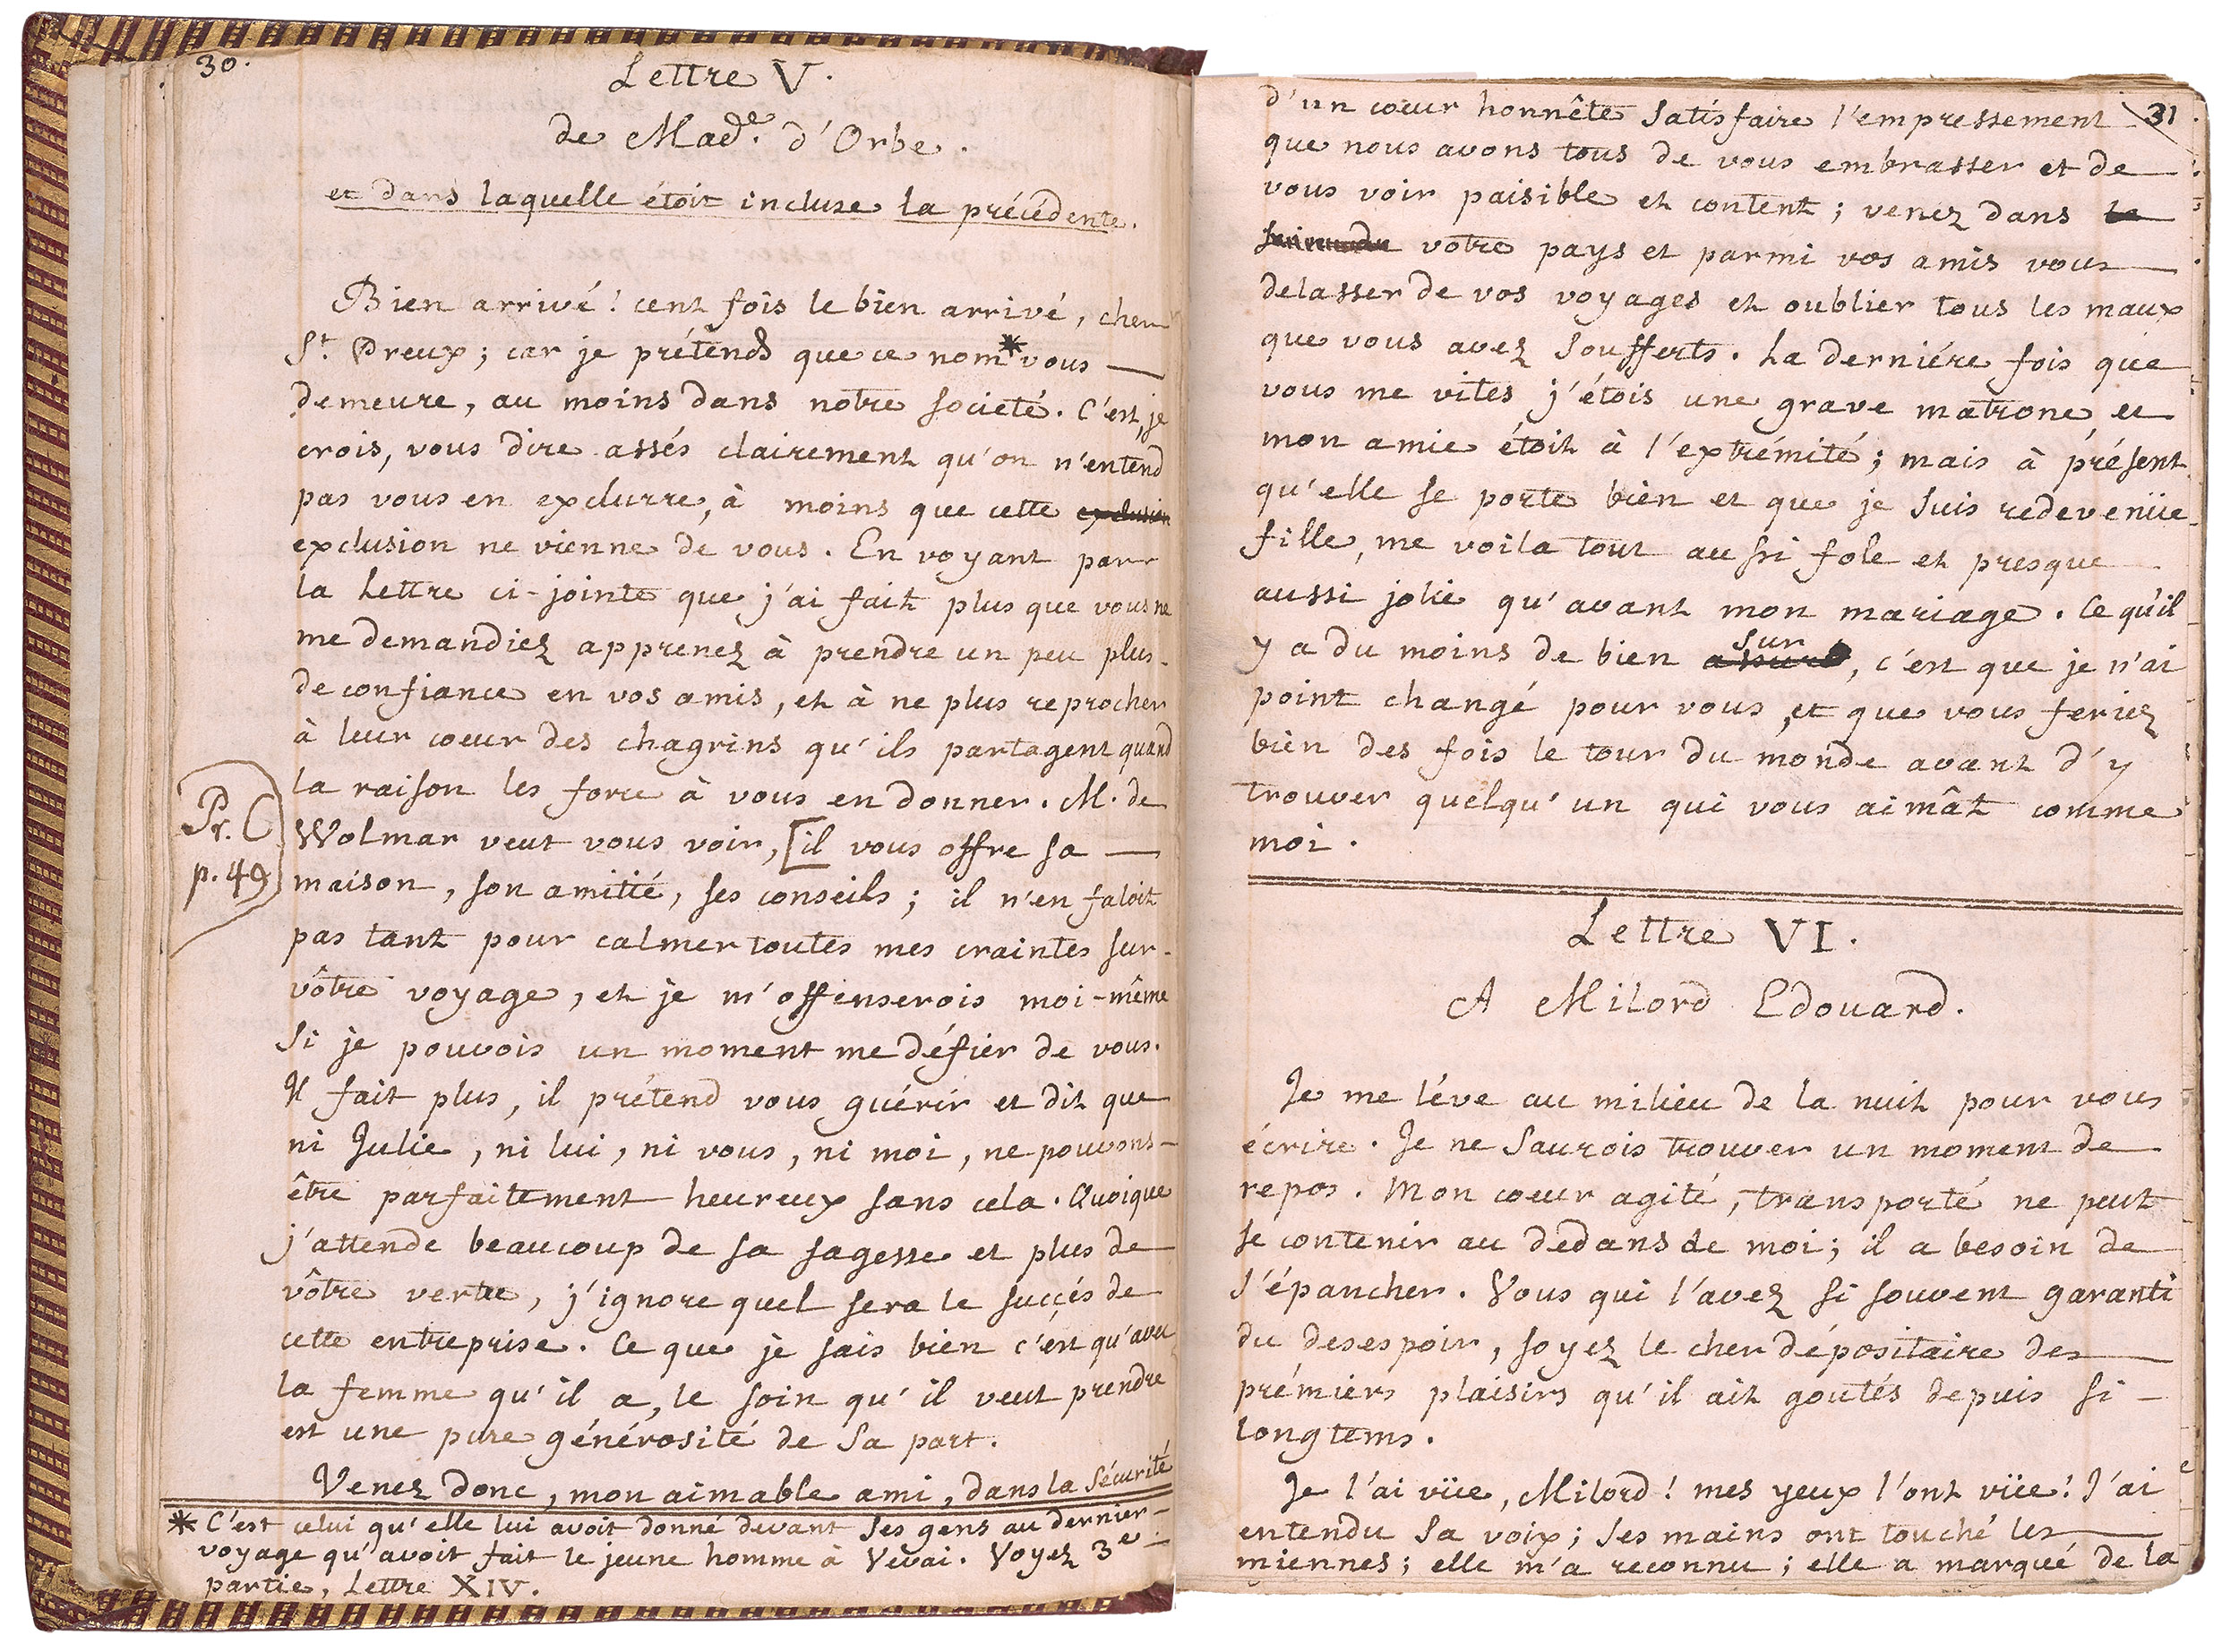 30.
Lettre V.
de Made. d'Orbe.
et dans laquelle étoit incluse la précédente.
Bien arrivé! cent fois le bien arrivé, cher
St. Preux; car je prétends que ce nom* vous
demeure, au moins dans notre societé. C'est, je
crois, vous dire assés clairement qu'on n'entend
pas vous en exclurre, à moins que cette exclusion
exclusion ne vienne de vous. En voyant par
la Lettre ci-jointe que j'ai fait plus que vous ne
me demandiez apprenez à prendre un peu plus
de confiance en vos amis, et à ne plus reprocher
à leur cœur des chagrins qu'ils partagent quand
la raison les force à vous en donner. M. de
Wolmar veut vous voir, [il vous offre sa
maison, son amitié, ses conseils; il n'en faloit
pas tant pour calmer toutes mes craintes sur
vôtre voyage, et je m'offenserois moi-même
si je pouvois un moment me défier de vous.
Il fait plus, il prétend vous guérir et dit que
ni Julie, ni lui, ni vous, ni moi, ne pouvons
être parfaitement heureux sans cela. Quoique
j'attende beaucoup de sa sagesse et plus de
vôtre vertu, j'ignore quel sera le succés de
cette entreprise. Ce que je sais bien c'est qu'avec
la femme qu'il a, le soin qu'il veut prendre
est une pure générosité de sa part.
Venez donc, mon aimable ami, dans la sécurité
* C'est celui qu'elle lui avoit donné devant ses gens au dernier
voyage qu'avoit fait le jeune homme à Vevai. Voyez 3e
partie, Lettre XIV.
Pr. C
p. 49
31
d'un cœur honnête satisfaire l'empressement
que nous avons tous de vous embrasser et de
vous voir paisible et content; venez dans le
votre pays et parmi vos amis vous
delasser de vos voyages et oublier tous les maux
que vous avez soufferts. La derniére fois que
vous me vites j'étois une grave matrone, et
mon amie étoit à l'extrémité; mais à présent
qu'elle se porte bien et que je suis redevenüe
fille, me voila tout aussi fole et presque
aussi jolie qu'avant mon mariage. Ce qu'il
y a du moins de bien assuré sur, c'est que je n'ai
point changé pour vous, et que vous feriez
bien des fois le tour du monde avant d'y
trouver quelqu'un qui vous aimât comme
moi.
Lettre VI.
A Milord Edouard.
Je me léve au milieu de la nuit pour vous
écrire. Je ne saurois trouver un moment de
repos. Mon cœur agité, transporté ne peut
se contenir au dedans de moi; il a besoin de
s'épancher. Vous qui l'avez si souvent garanti
du desespoir, soyez le cher dépositaire des
prémiers plaisirs qu'il ait goutés depuis si
longtems.
Je l'ai vüe, Milord! mes yeux l'ont vüe! J'ai
entendu sa voix; ses mains ont touché les
miennes; elle m'a reconnu; elle a marqué de la